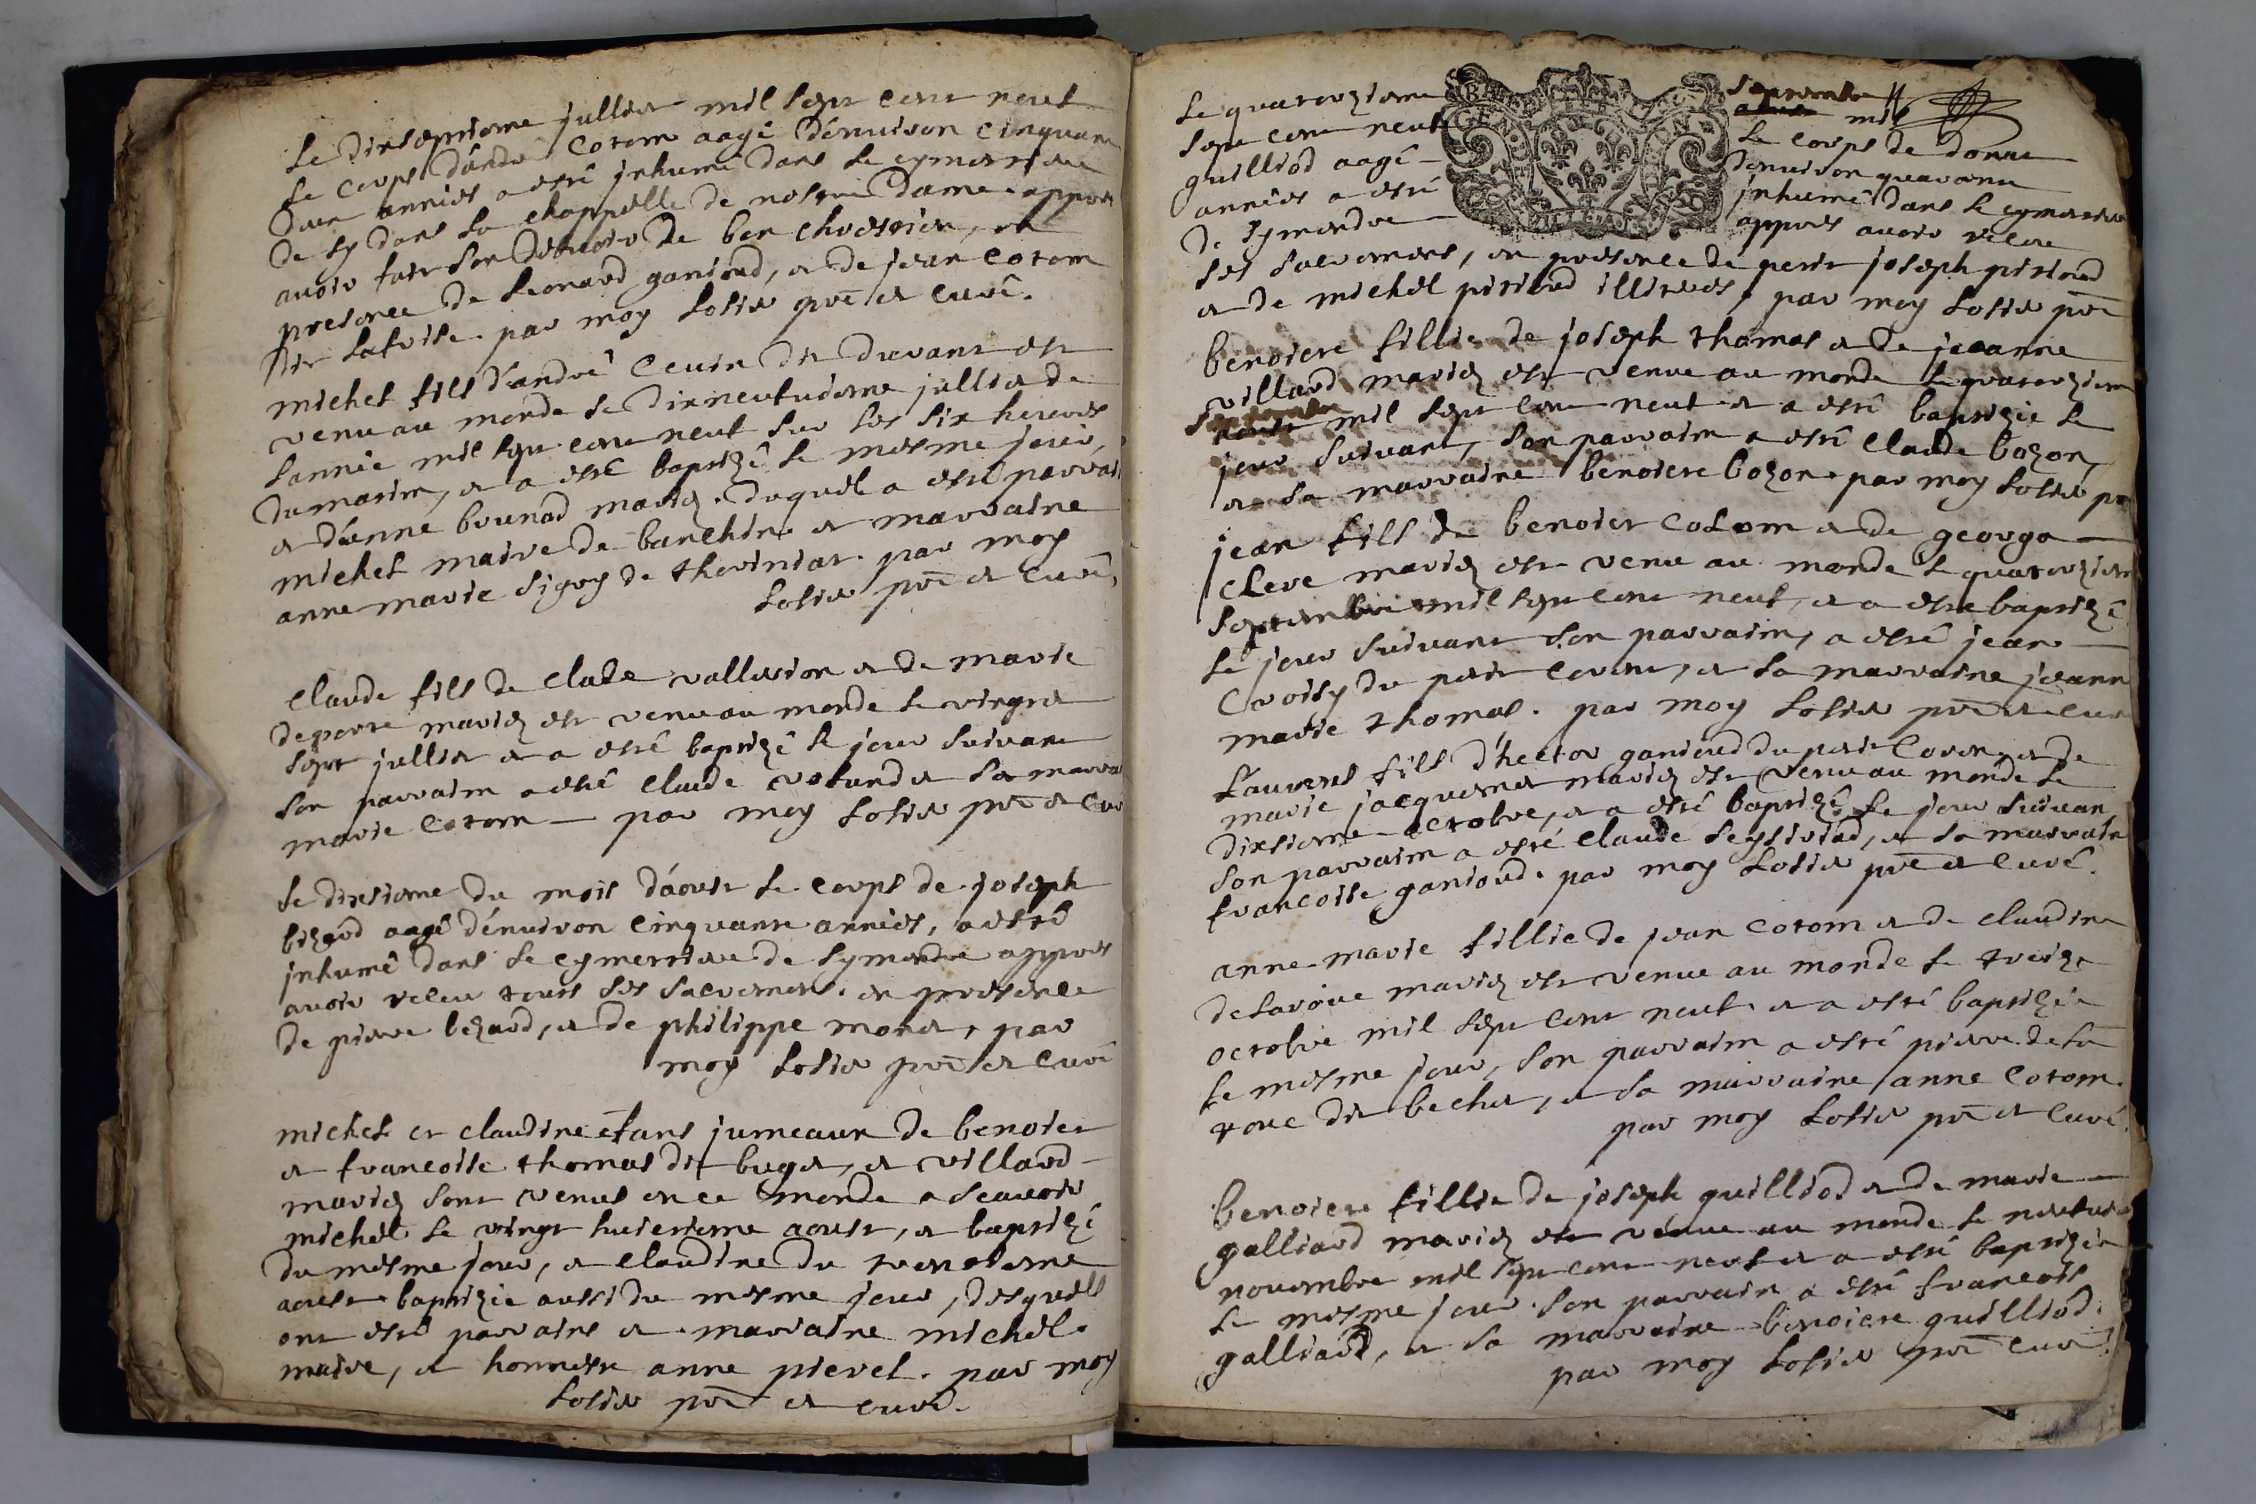 Le dixseptiesme jullier mil sept cent neuf
Le corps d'andré Cotom aagé d'enuison cinquante
deux années a esté jnhumé dans le cymertiere
de sy dans la chappelle de nostre Dame appres
auoir fait son deuoir de bon chrestien, en
presence de Leonard ganioud, et de jean Cotom
dit par moy Losier pre et curé.
michel fils d'andré Ceuin dit durant est
venu au monde le dixneufuiesme jullier de
l'année mil sept cent neuf sur les six heures
du matin, et a esté baptizé le mesme jour,
et d'anne brunod mariez. duquel a esté parrain
michel maire de banchin et marraine
anne marie sigoy de thoiriniat. par moy
Losier pre et curé,
Claude fils de Claude vallesion et de marie
deporte mariez est venu au monde le vingt et
sept jullier et a esté baptizé le jour suiuant
son parrain a esté Claude et sa marra
marie Cotom — par moy Losier pre et curé
Le dixsiesme du mois d'aoust le corps de joseph
bizard aagé d'énuiron cinquante années, a esté
jnhumé dans le cymertiere de symandre appres
auoir receu tous ses sacremens. en presence
de pierre bezard, et de philippe moret, par
moy Losier pre et curé
michel et claudine éfans jumeaux de benoict
et francoise thomas dit buget, et villard
mariez sont venus en ce monde a scauoir
michel le vingt huictiesme aoust, et baptizé
du mesme jour, et claudine du trentiesme
aoust baptizée aussi du mesme jour, desquels
ont esté parrains et marraine michel
maire, et honneste anne pieret. par moy
Losier pre et curé.
Le quatorziesme septembre mil
sept cent neuf Le corps de donne
guilliod aagé — denuiron quarante
années a esté jnhumé dans le cymertiere
de symandre — appres auoir receu
ses sacremens, en presence de petit joseph pirioud
et de michel pirioud illiteres, par moy Losier pre
benoicte fillie de joseph thomas et de jeanne
villard mariez est venue au monde le quatorziesme
septembre mil sept cent neuf et a esté baptizée le
jour suiuant, son parrain a esté Claude bozon,
et sa marraine benoicte bozon. par moy Losier pre
jean fils de benoict Cotom et de george —
Clere mariez est venu au monde le quatorziesme
septembre mil sept cent neuf, et a esté baptizé
le jour suiuant son parrain, a esté jean —
Croisy du petit Corent, et sa marraine jeanne
marie thomas. par moy Losier pre et curé
Laurens fils d'hector ganioud du petit Corent et de
marie jacquemet mariez est venu au monde le
dixsiesme octobre, et a esté baptizé le jour suiuan
son parrain a esté Claude seyssiriad, et sa marrain
francoise ganioud. par moy Losier pre et curé.
anne-marie fillie de jean Cotom et de claudine
delaroüe mariez est venue au monde le treize
octobre mil sept cent neuf. et a esté baptizée
le mesme jour, son parrain a esté pierre dela
roue dit bechet, et sa marraine anne Cotom.
par moy Losier pre et curé.
benoicte fillie de joseph guilliod et de marie —
galliard mariez est venue au monde le neufuie
nouembre mil sept cent neuf et a esté baptizée
le mesme jour. son parrain a esté francois
galliard, et sa marraine benoicte guilliod.
par moy Losier pre curé.